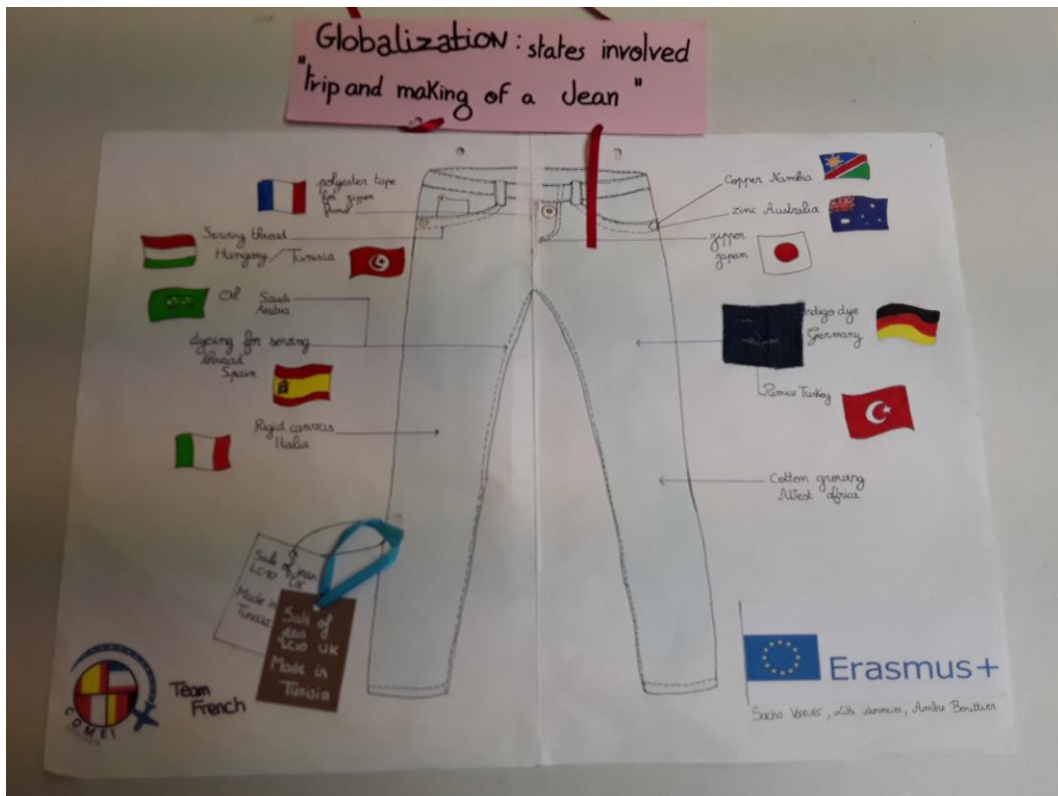 Globalization: states involved
"trip and making of a Jean"
polyester tape
for zipper
France
Sewing thread
Hungary / Tunisia
Oil Saudi
Arabia
dyeing for sewing
thread
Spain
Rigid canvas
Italia
Copper Namibia
zinc Australia
zipper
Japan
Indigo dye
Germany
Pumice Turkey
Cotton growing
West africa
Sale of jean
LC10 UK
Made in
Tunisia
Sale of
jean
LC10 UK
Made in
Tunisia
COMEI
Team
French
Erasmus+
Ambre Bouttier